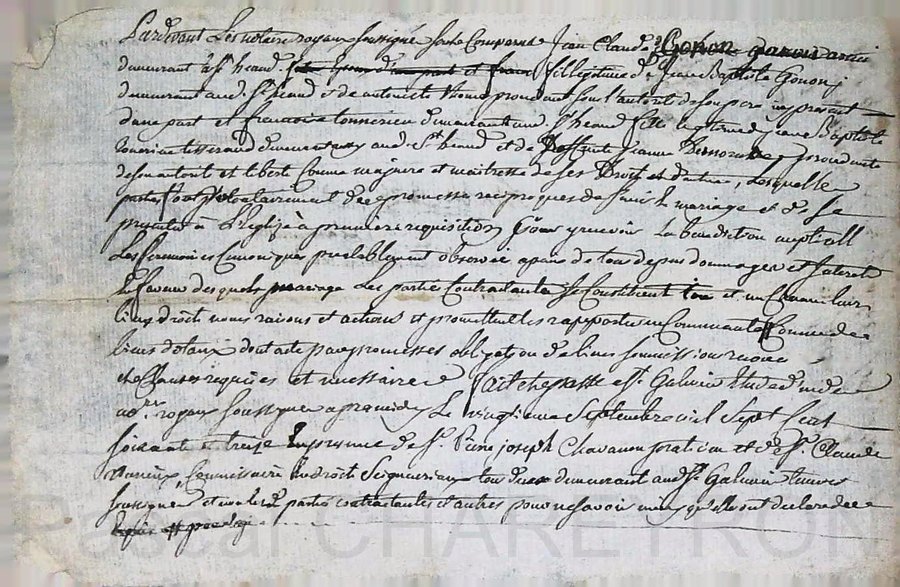 Pardevant Les notaire royaux soussigné furent Comparus Jean Claude Gonon
demeurant à St heand fils légitime de Jean Baptiste Gonon
demeurant aud. St heand et de antoinete thoms procedant sous l'autorité de son pere icy present
dune part et francoise tonnerieu demeurant aud St heand fille legitime de jean Baptiste
tisserand demeurant aud St heand et de Deffunte jeanne procedante
de son autorité et liberté Comme majeure et maitresse de ses Droits et dautre, Lesquelles
parties sont volontairement et de promesse reciproques de s'unir le mariage et de se
presenter à L'Eglize à premiere requisition pour y recevoir La benediction nuptiall
Les Ceremonies Canoniques prealablement observée apaine de tou depens dommages et Interets
En faveur desquels mariage Les parties Contractantes se Constituent tou et un Chacun leurs
biens droits noms raisons et actions et promettent les rapporter en Communauté Comme de
biens dotaux dont acte par promesses obligation de biens soumissions renon
et Clauses requises et necessaires fait et passé à St Galmier Etude dud
no.re royaux soussigné apres midy Le vingtieme Septembre mil Sept Cent
soixante et treize En presence de Sr. Pierre joseph Chavanon praticien et de Sr. Claude
Commissaire En droits Seigneuriaux tou deux demeurant aud St Galmier temoins
soussignés et non les d. parties contractantes et autres pour ne savoir ainsy qu'elles ont declaré de

Pascal CHAREYRON